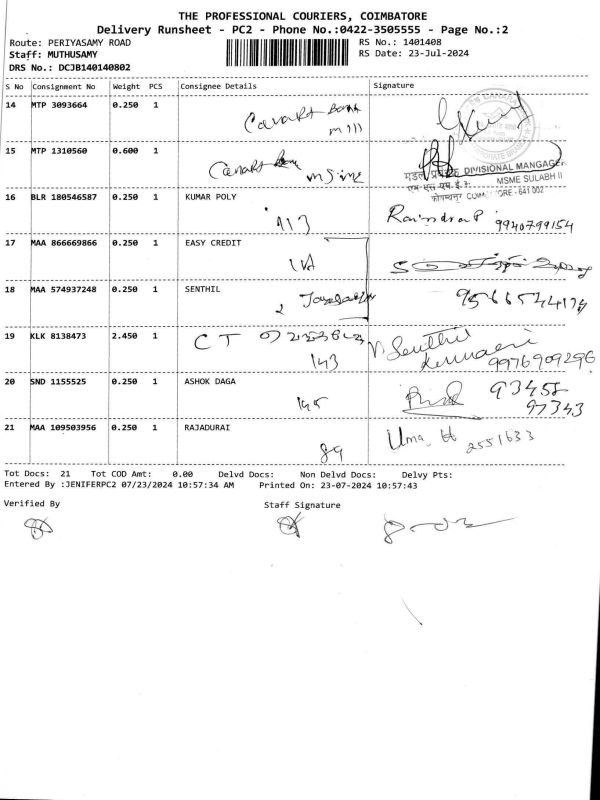 THE PROFESSIONAL COURIERS, COIMBATORE
Delivery Runsheet - PC2 - Phone No.:0422-3505555 - Page No.:2
Route: PERIYASAMY ROAD
RS No.: 1401408
Staff: MUTHUSAMY
RS Date: 23-Jul-2024
DRS No.: DCJB140140802
S No Consignment No Weight PCS Consignee Details Signature
14 MTP 3093664 0.250 1
Canara Bank
15 MTP 1310560 0.600 1
Canara Bank msme
DIVISIONAL MANGAGER
MSME SULABH II
641 002
16 BLR 180546587 0.250 1 KUMAR POLY
113
Ravindra P 9940799154
17 MAA 866669866 0.250 1 EASY CREDIT
18 MAA 574937248 0.250 1 SENTHIL
19 KLK 8138473 2.450 1 C T
143
Senthil
9976909296
20 SND 1155525 0.250 1 ASHOK DAGA
93458
97343
21 MAA 109503956 0.250 1 RAJADURAI
89
Uma 2551633
Tot Docs: 21 Tot COD Amt: 0.00 Delvd Docs: Non Delvd Docs: Delvy Pts:
Entered By :JENIFERPC2 07/23/2024 10:57:34 AM Printed On: 23-07-2024 10:57:43
Verified By Staff Signature